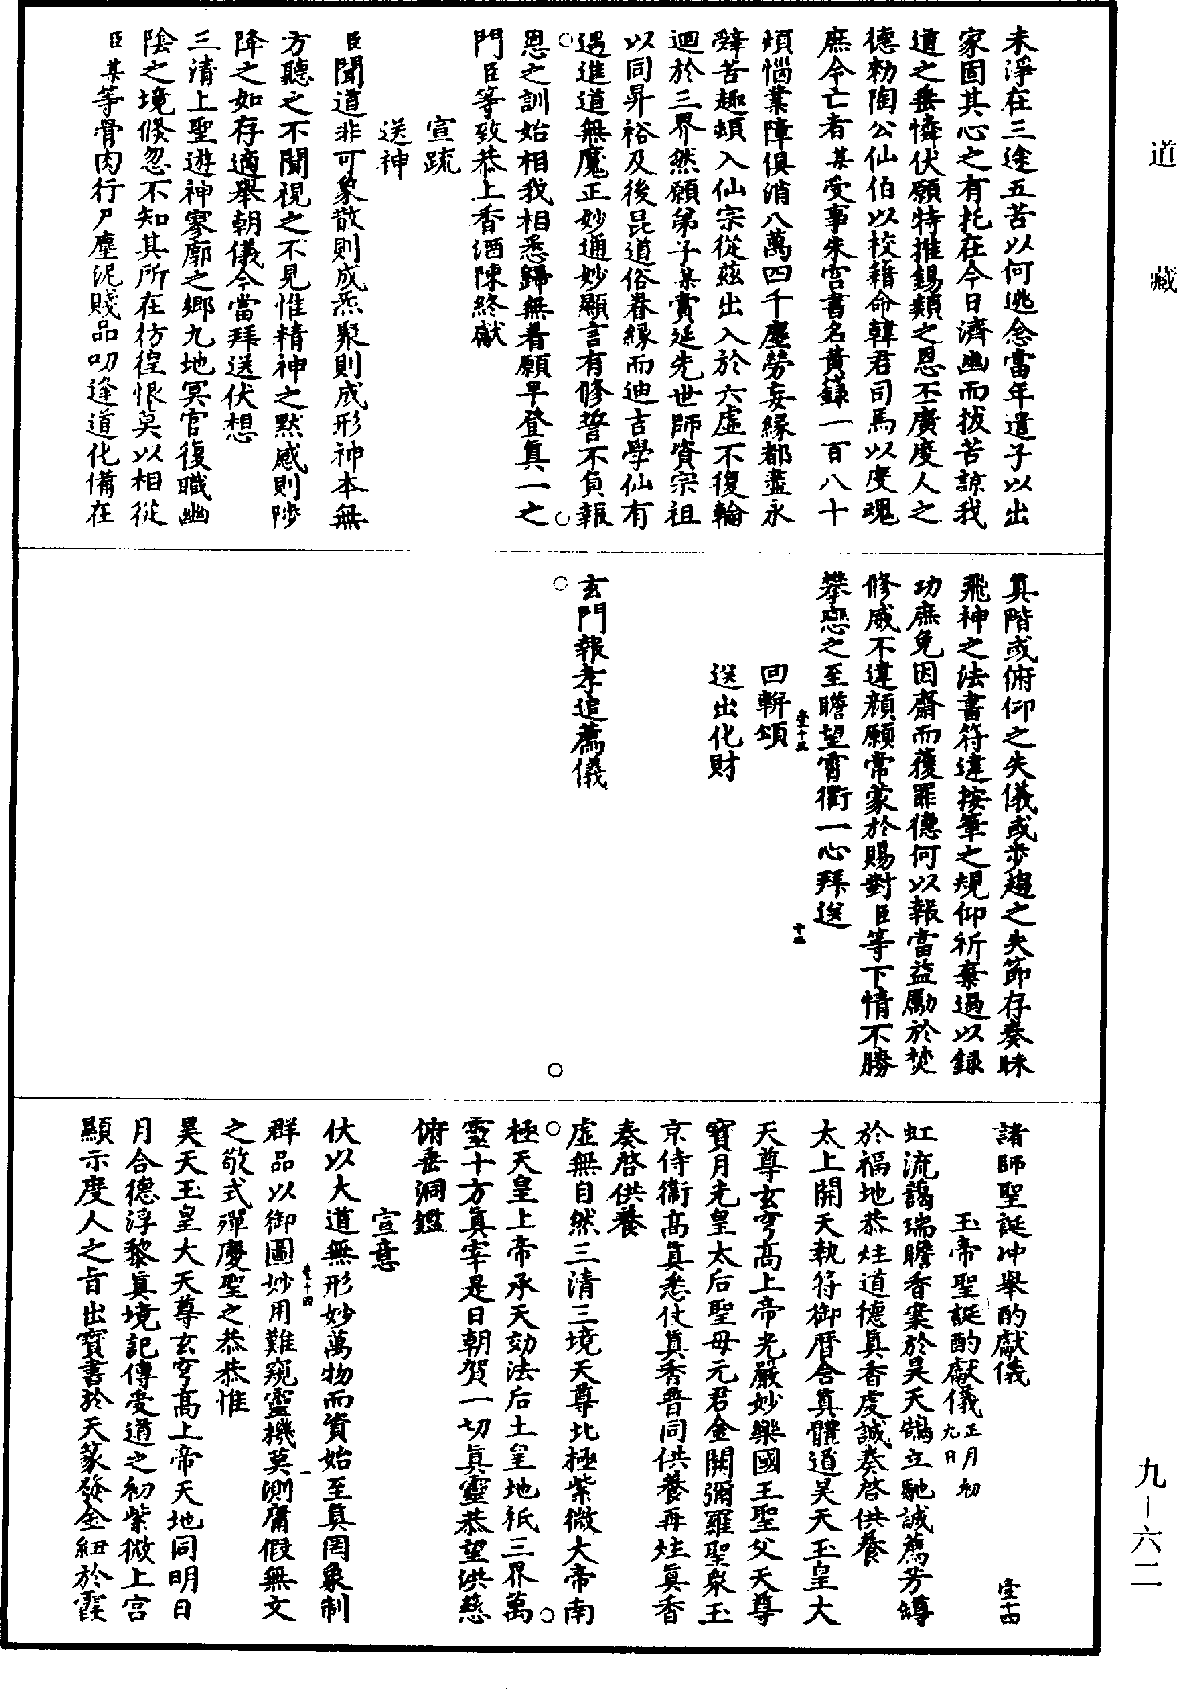 道藏
九－六二
未淨在三途五苦以何逃念當年遺子以出
家固其心之有托在今日濟幽而拔苦諒我
道之垂憐伏願特推錫類之恩丕廣度人之
德勑陶公仙伯以校籍命韓君司馬以度魂
庶令亡者某受事朱宮書名黃籙一百八十
煩惱業障俱消八萬四千塵勞妄緣都盡永
辭苦趣頓入仙宗從茲出入於六虛不復輪
迴於三界然願弟子某賞延先世師資宗祖
以同昇裕及後昆道俗眷緣而迪吉學仙有
遇進道無魔正妙通妙顯言有修誓不負報
恩之訓始相我相悉歸無着願早登真一之
門臣等致恭上香酒陳終獻
宣疏
送神
臣聞道非可象散則成炁聚則成形神本無
方聽之不聞視之不見惟精神之默感則陟
降之如存適舉朝儀今當拜送伏想
三清上聖遊神寥廓之鄉九地冥官復職幽
陰之境倏忽不知其所在彷徨恨莫以相從
臣某等骨肉行尸塵泥賤品叨逢道化備在
真階或俯仰之失儀或步趨之失節存奏昧
飛神之法書符違按筆之規仰祈棄過以錄
功庶免因齋而獲罪德何以報當益勵於焚
修威不違顏願常蒙於賜對臣等下情不勝
攀戀之至瞻望霄衢一心拜送
回軿頌
送出化財
玄門報孝追薦儀
諸師聖誕冲舉酌獻儀
壹十四
玉帝聖誕酌獻儀正月初九日
虹流謁瑞瞻香案於昊天鵠立馳誠薦芳罇
於福地恭炷道德真香虔誠奏啓供養
太上開天執符御曆含真體道昊天玉皇大
天尊玄穹高上帝光嚴妙樂國王聖父天尊
寶月光皇太后聖母元君金闕彌羅聖眾玉
京侍衛高真悉仗真香普同供養再炷真香
奏啓供養
虛無自然三清三境天尊北極紫微大帝南
極天皇上帝承天効法后土皇地祇三界萬
靈十方真宰是日朝賀一切真靈恭望洪慈
俯垂洞鑑
宣意
伏以大道無形妙萬物而資始至真罔象制
群品以御圖妙用難窺靈機莫測庸假無文
之敬式殫慶聖之恭恭惟
昊天玉皇大天尊玄穹高上帝天地同明日
月合德浮黎真境記傳受道之初紫微上宮
顯示度人之旨出寶書於天篆發金紐於霞